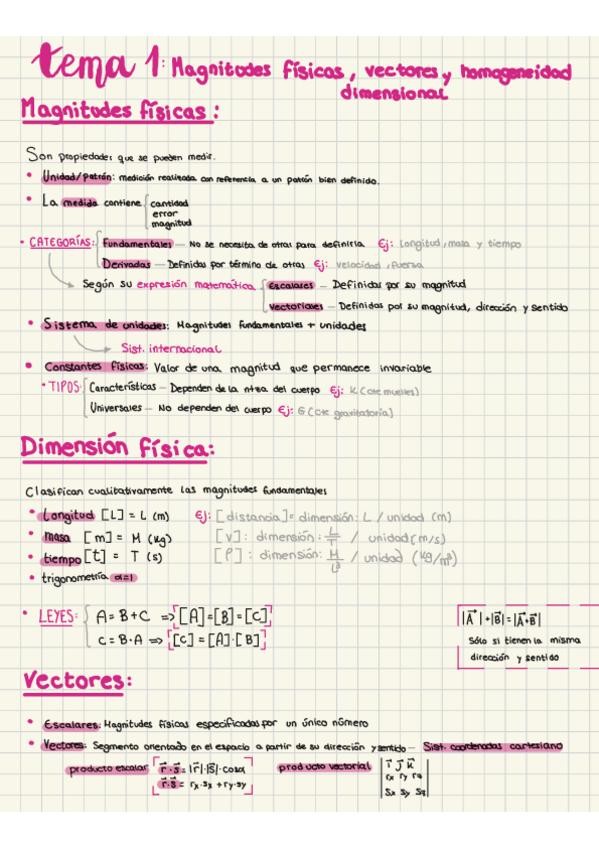 tema 1: Magnitudes físicas, vectores y homogeneidad
dimensional
Magnitudes físicas:
Son propiedades que se pueden medir.
• Unidad/Patrón: medición realizada con referencia a un patrón bien definido.
• La medida contiene cantidad
error
magnitud
• CATEGORÍAS: Fundamentales — No se necesita de otras para definirla Ej: Longitud, masa y tiempo
Derivadas — Definidas por término de otras Ej: velocidad, fuerza
Según su expresión matemática Escalares — Definidas por su magnitud
Vectoriales — Definidas por su magnitud, dirección y sentido
• Sistema de unidades: Magnitudes fundamentales + unidades
Sist. internacional
• Constantes físicas: Valor de una magnitud que permanece invariable
• TIPOS: Características — Dependen de la ntza del cuerpo Ej: K (cte muelles)
Universales — No dependen del cuerpo Ej: G (cte gravitatoria)
Dimensión física:
Clasifican cualitativamente las magnitudes fundamentales
• Longitud [L] = L (m) Ej: [distancia] = dimensión: L / unidad (m)
• masa [m] = M (kg) [v]: dimensión: L/T / unidad (m/s)
• tiempo [t] = T (s) [ρ]: dimensión: M/L³ / unidad (kg/m³)
• trigonometría α=1
• LEYES: A = B + C => [A] = [B] = [C]
C = B · A => [C] = [A] · [B]
|A⃗| + |B⃗| = |A⃗+B⃗|
Sólo si tienen la misma
dirección y sentido
Vectores:
• Escalares: Magnitudes físicas especificadas por un único número
• Vectores: Segmento orientado en el espacio a partir de su dirección y sentido — Sist. coordenadas cartesiano
producto escalar r⃗ · s⃗ = |r⃗| · |s⃗| · cosα
r⃗ · s⃗ = rx · sx + ry · sy
producto vectorial i⃗ j⃗ k⃗
rx ry rz
sx sy sz